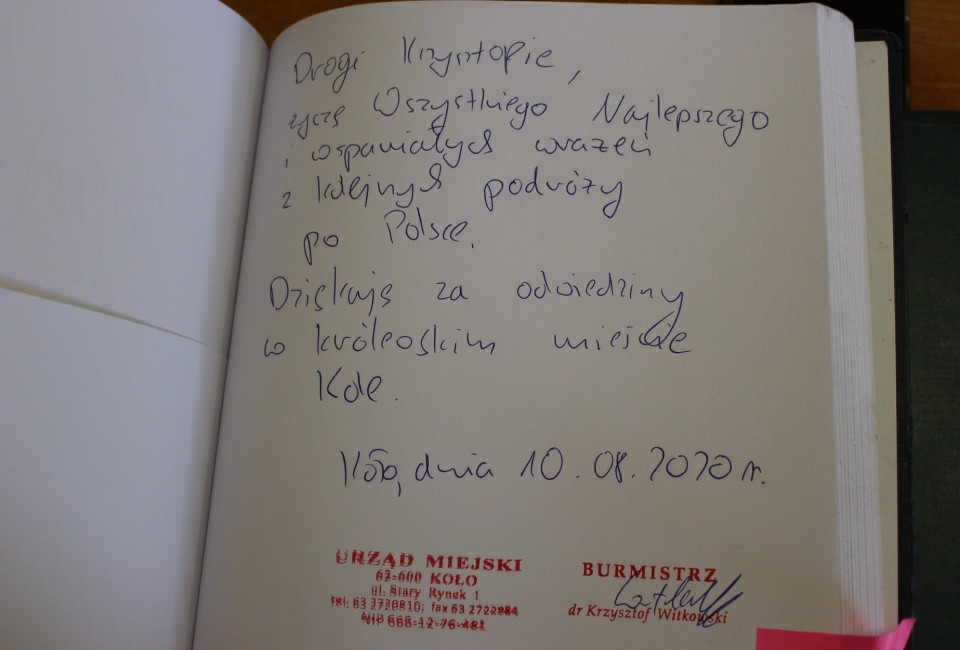 Drogi Krzysztofie,
życzę Wszystkiego Najlepszego
i wspaniałych wrażeń
z kolejnych podróży
po Polsce.
Dziękuję za odwiedziny
w królewskim mieście
Kole.
Koło, dnia 10.08.2020 r.
URZĄD MIEJSKI
62-600 KOŁO
ul. Stary Rynek 1
tel. 63 2720810; fax 63 2722984
NIP 666-12-76-481
BURMISTRZ
dr Krzysztof Witkowski